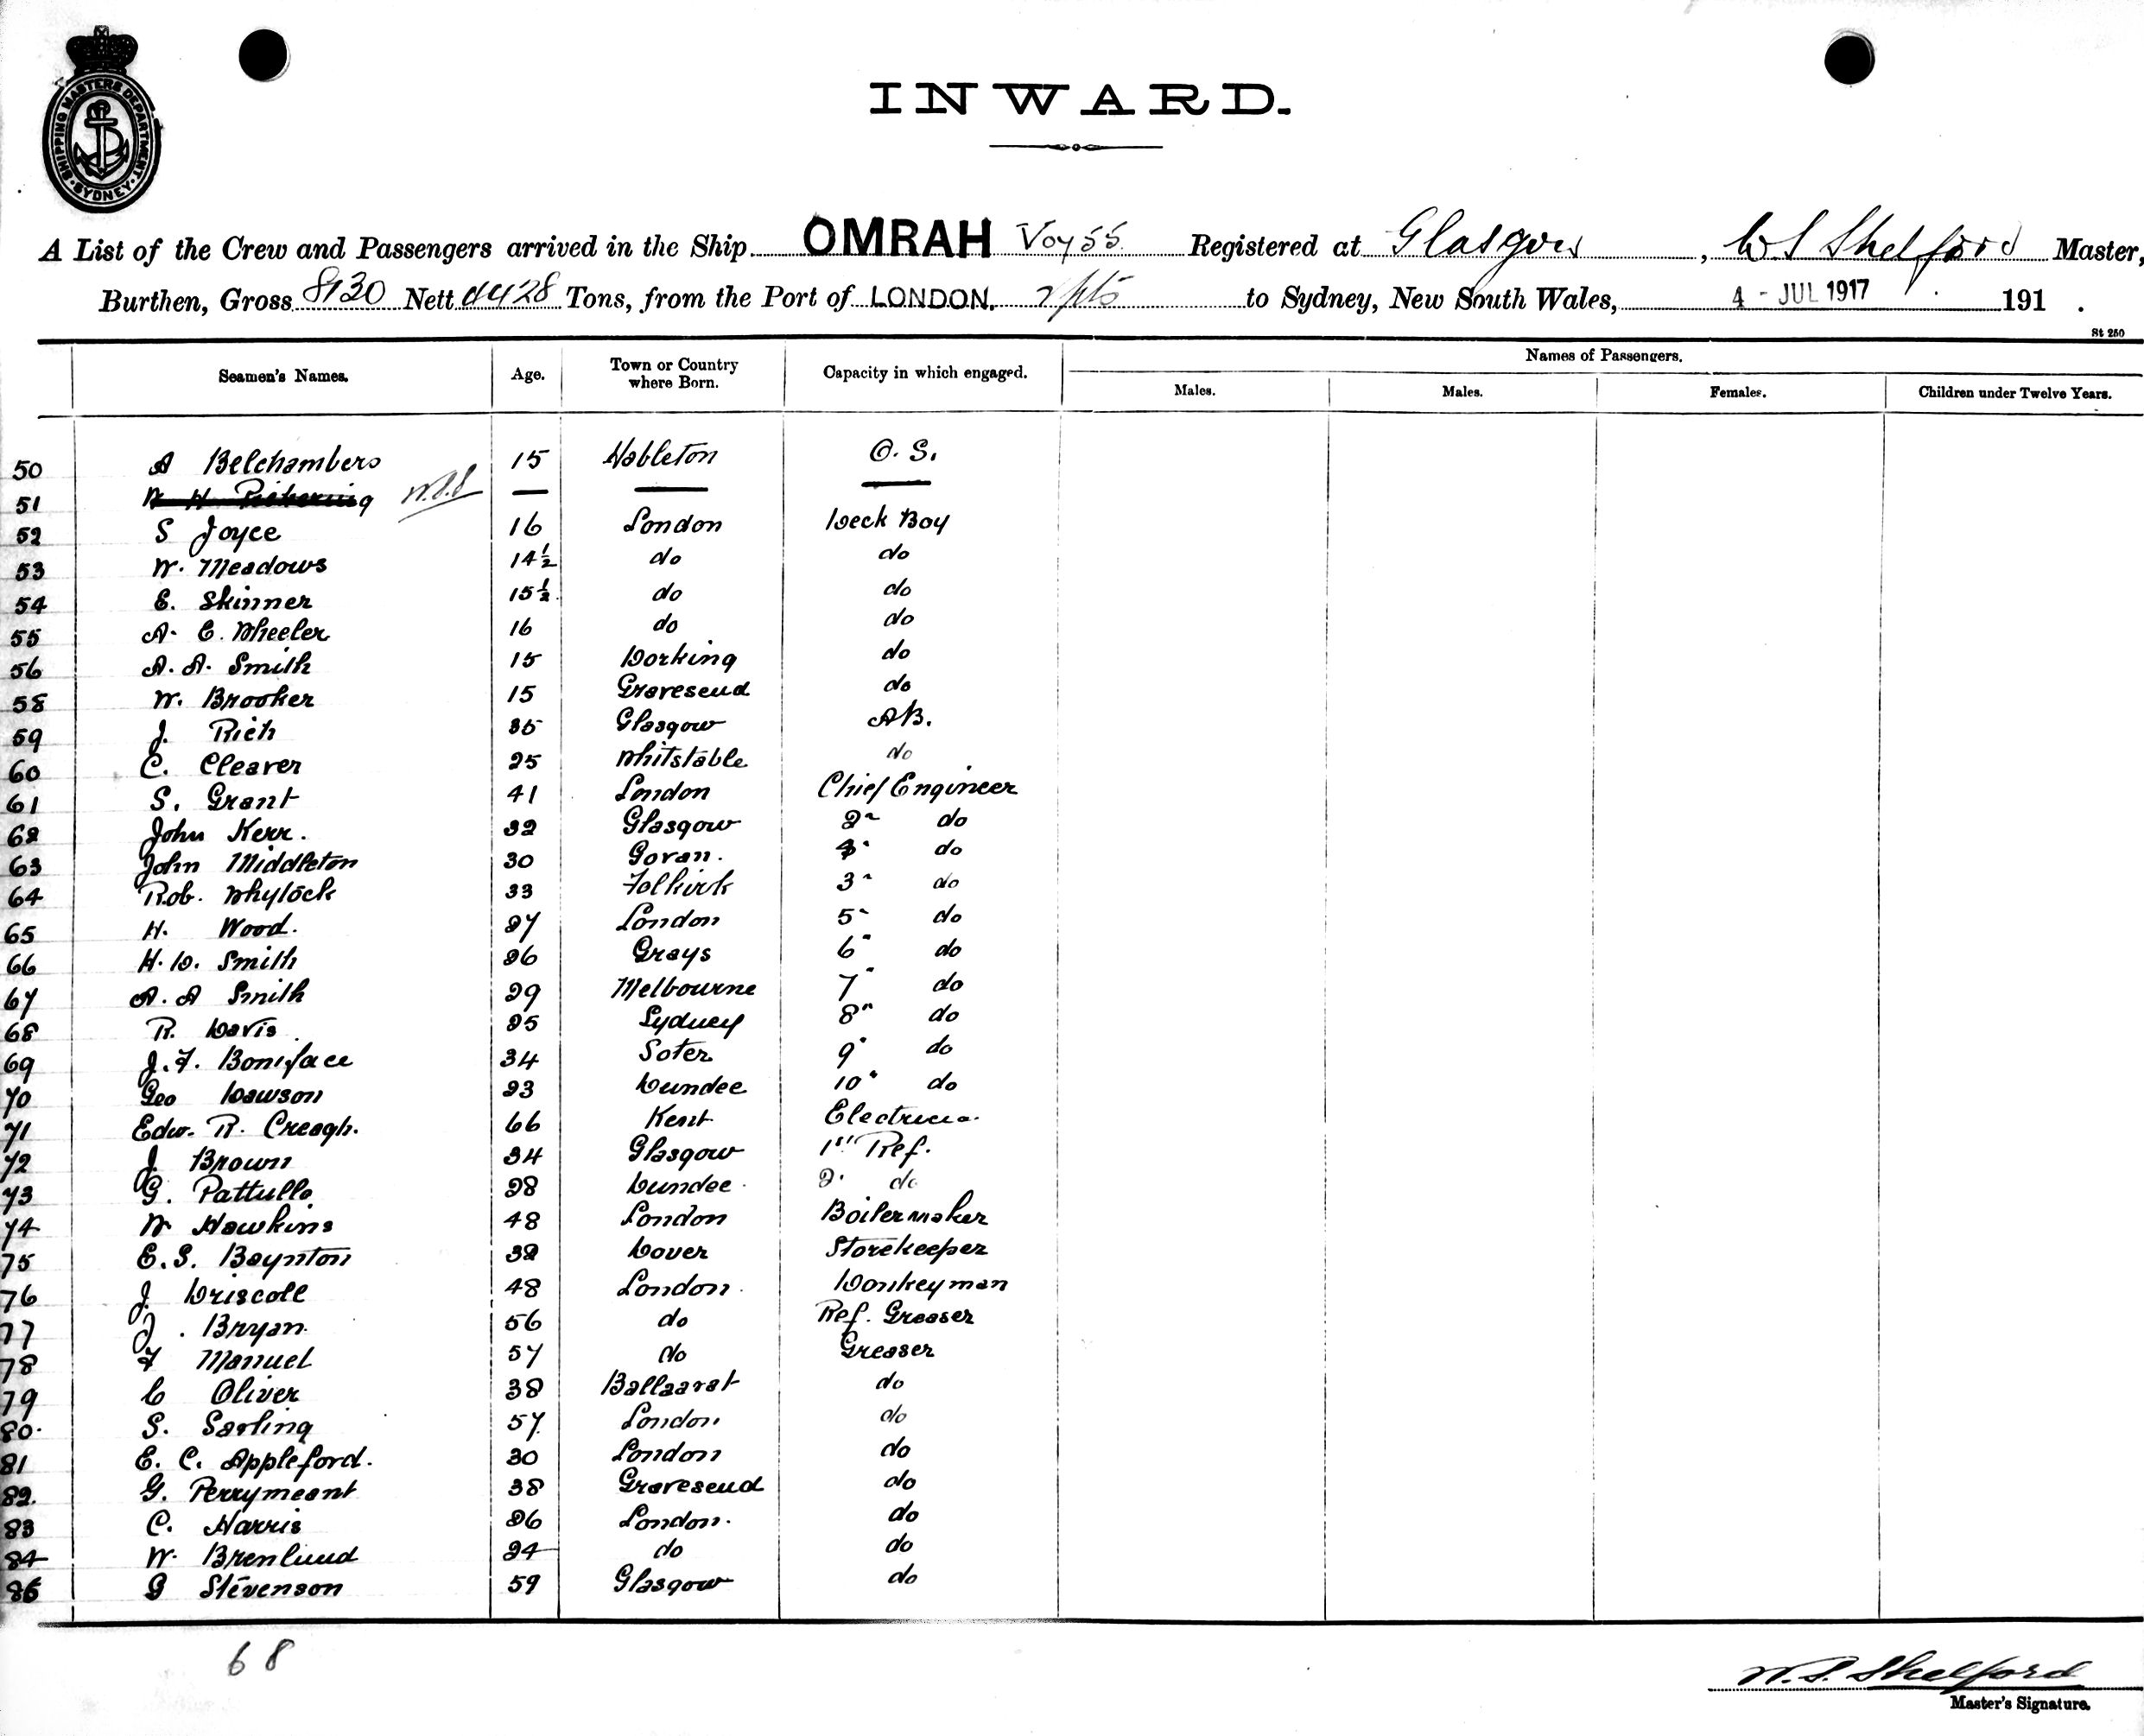 SHIPPING MASTERS DEPARTMENT. SYDNEY.
INWARD.
A List of the Crew and Passengers arrived in the Ship OMRAH Voy 55 Registered at Glasgow, W S Shelford Master,
Burthen, Gross 8130 Nett 4428 Tons, from the Port of LONDON. to Sydney, New South Wales, 4 - JUL 1917 191 .
St 250
Seamen's Names. Age. Town or Country where Born. Capacity in which engaged. Names of Passengers.
Males. Males. Females. Children under Twelve Years.
50 A Belchambers 15 O. S.
51 W H Pickering W.S.S — — —
52 S Joyce 16 London Deck Boy
53 W. Meadows 14½ do do
54 E. Skinner 15½ do do
55 A. E. Wheeler 16 do do
56 A. A. Smith 15 Dorking do
58 W. Brooker 15 Gravesend do
59 J. Rich 35 Glasgow AB.
60 C. Cleaver 25 Whitstable do
61 S. Grant 41 London Chief Engineer
62 John Kerr. 32 Glasgow 2" do
63 John Middleton 30 Govan. 4" do
64 Rob. Whylock 33 Falkirk 3" do
65 H. Wood. 27 London 5" do
66 H. D. Smith 26 Grays 6" do
67 A. A Smith 29 Melbourne 7" do
68 R. Davis 25 Sydney 8" do
69 J. F. Boniface 34 Soter 9" do
70 Geo Dawson 23 Dundee 10" do
71 Edw. R. Creagh. 66 Kent Electricia.
72 J. Brown 34 Glasgow 1st Ref.
73 G. Pattullo 28 Dundee 2" do
74 W Hawkins 48 London Boilermaker
75 E. S. Boynton 32 Dover Storekeeper
76 J. Driscoll 48 London. Donkeyman
77 J. Bryan. 56 do Ref. Greaser
78 F Manuel 57 do Greaser
79 C Oliver 38 Ballaarat do
80. S. Sarling 57 London. do
81 E. C. Appleford. 30 London do
82. G. Perrymeant 38 Gravesend do
83 C. Harris 26 London. do
84 W. Brenlund 24 do do
85 G Stevenson 59 Glasgow do
68
W. S. Shelford
Master's Signature.